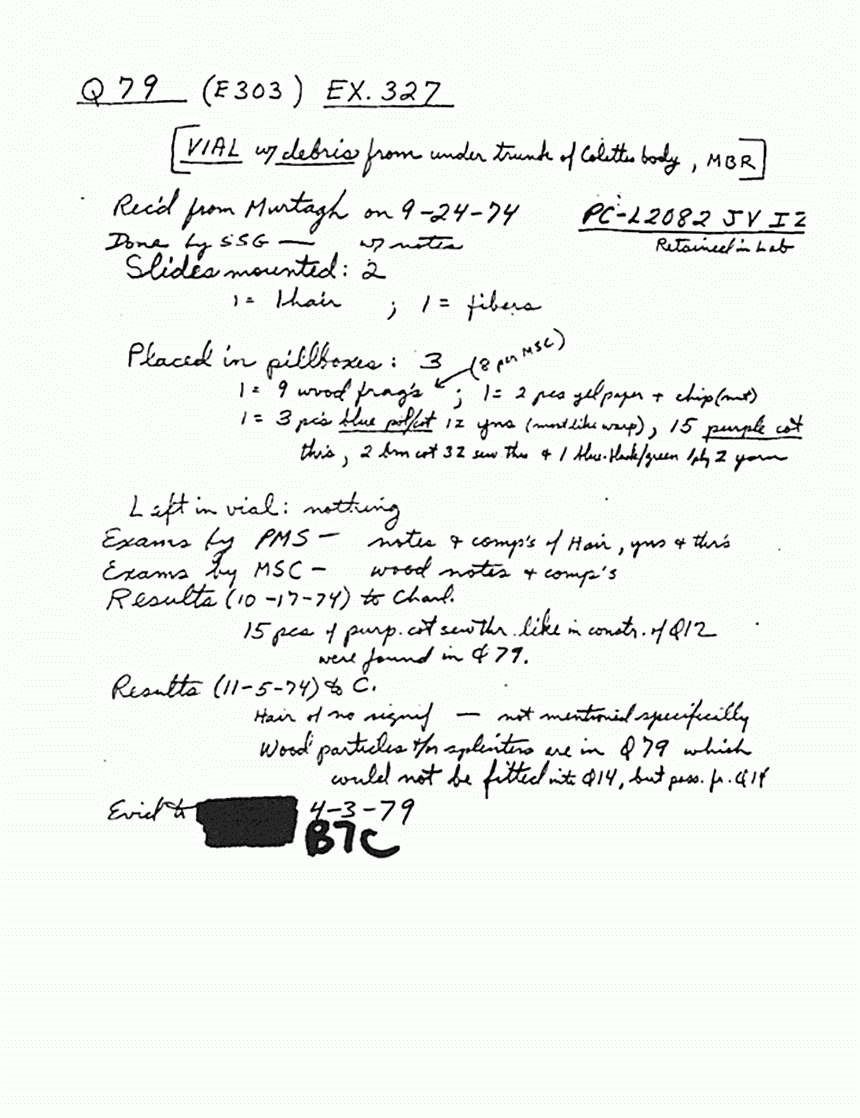 Q 79 (E303) EX. 327
[VIAL w/ debris from under trunk of Colettes body, MBR]
Rec'd from Murtagh on 9-24-74 PC-L2082 JV IZ
Done by SSG — w/ notes Retained in Lab
Slides mounted: 2
1 = 1 hair ; 1 = fibers
Placed in pillboxes: 3 (8 per MSC)
1 = 9 wood frag's ; 1 = 2 pcs yel paper + chip
1 = 3 pcs blue pol/cot 1Z yns (most like warp), 15 purple cot
thrs, 2 brn cot 3Z sew thrs & 1 blue-black/green 1ply Z yarn
Left in vial: nothing
Exams by PMS — notes & comp's of Hair, yns & thr's
Exams by MSC — wood notes & comp's
Results (10-17-74) to Charl.
15 pcs of purp. cot sew thr. like in constr. of Q12
were found in Q79.
Results (11-5-74) to C.
Hair of no signif — not mentioned specifically
Wood particles &/or splinters are in Q79 which
could not be fitted into Q14, but poss. fr. Q14
Evid to 4-3-79
B7C